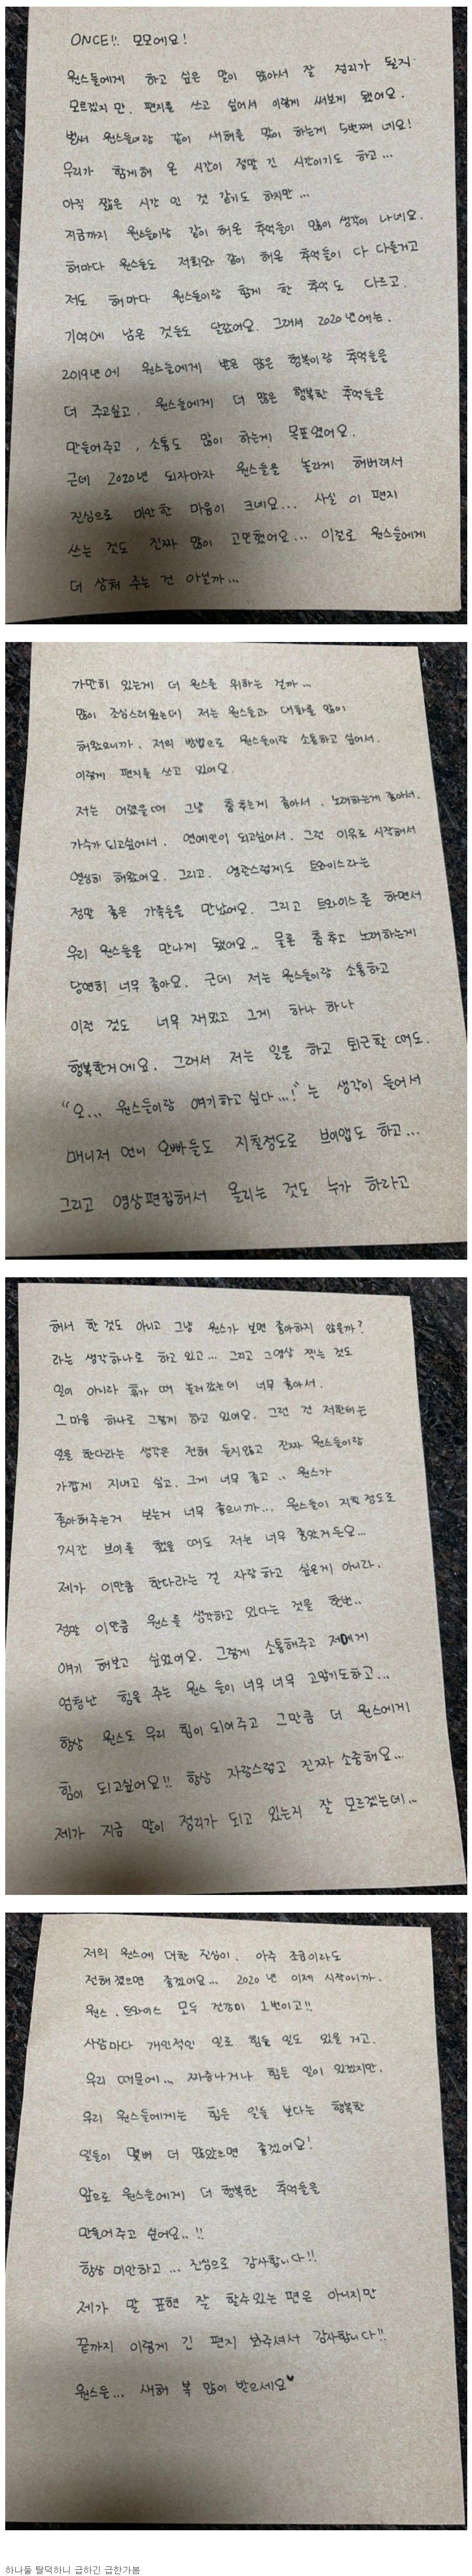 ONCE!! 모모에요!
원스들에게 하고 싶은 말이 많아서 잘 정리가 될지
모르겠지만. 편지를 쓰고 싶어서 이렇게 써보게 됐어요.
벌써 원스들이랑 같이 새해를 맞이 하는게 5번째 네요!
우리가 함께해 온 시간이 정말 긴 시간이기도 하고...
아직 짧은 시간 인 것 같기도 하지만...
지금까지 원스들이랑 같이 해온 추억들이 많이 생각이 나네요.
해마다 원스들도 저희와 같이 해온 추억들이 다 다를거고
저도 해마다 원스들이랑 함께 한 추억도 다르고.
기억에 남은 것들도 달랐어요. 그래서 2020년에는.
2019년에 원스들에게 받은 많은 행복이랑 추억들을
더 주고싶고. 원스들에게 더 많은 행복한 추억들을
만들어주고, 소통도 많이 하는게 목표였어요.
근데 2020년 되자마자 원스들을 놀라게 해버려서
진심으로 미안한 마음이 크네요... 사실 이 편지
쓰는 것도 진짜 많이 고민했어요... 이걸로 원스들에게
더 상처 주는 건 아닐까...
가만히 있는게 더 원스를 위하는 걸까...
많이 조심스러웠는데 저는 원스들과 대화를 많이
해왔으니까. 저의 방법으로 원스들이랑 소통하고 싶어서.
이렇게 편지를 쓰고 있어요.
저는 어렸을때 그냥 춤추는게 좋아서. 노래하는게 좋아서.
가수가 되고싶어서. 연예인이 되고싶어서. 그런 이유로 시작해서
열심히 해왔어요. 그리고. 영광스럽게도 트와이스라는
정말 좋은 가족들을 만났어요. 그리고 트와이스를 하면서
우리 원스들을 만나게 됐어요... 물론 춤추고 노래하는게
당연히 너무 좋아요. 근데 저는 원스들이랑 소통하고
이런 것도 너무 재밌고 그게 하나 하나
행복한거에요. 그래서 저는 일을 하고 퇴근할 때도.
"오... 원스들이랑 얘기하고 싶다...!"는 생각이 들어서
매니저 언니 오빠들도 지칠정도로 브이앱도 하고...
그리고 영상편집해서 올리는 것도 누가 하라고
해서 한것도 아니고 그냥 원스가 보면 좋아하지 않을까?
라는 생각하나로 하고 있고... 그리고 그영상 찍는 것도
일이 아니라 휴가 때 놀러갔는데 너무 좋아서.
그 마음 하나로 그렇게 하고 있어요. 그런 건 저한테는
일을 한다라는 생각은 전혀 들지않고 진짜 원스들이랑
가깝게 지내고 싶고. 그게 너무 좋고.. 원스가
좋아해주는거 보는거 너무 좋으니까... 원스들이 지칠 정도로
7시간 브이를 했을 때도 저는 너무 좋았거든요...
제가 이만큼 한다라는 걸 자랑하고 싶은게 아니라.
정말 이만큼 원스를 생각하고 있다는 것을 한번..
얘기 해보고 싶었어요. 그렇게 소통해주고 저에게
엄청난 힘을 주는 원스 들이 너무 너무 고맙기도하고...
항상 원스도 우리 힘이 되어주고 그만큼 더 원스에게
힘이 되고싶어요!! 항상 자랑스럽고 진짜 소중해요...
제가 지금 말이 정리가 되고 있는지 잘 모르겠는데...
저의 원스에 대한 진심이. 아주 조금이라도
전해졌으면 좋겠어요... 2020년 이제 시작이니까.
원스. 트와이스 모두 건강이 1번이고!!
사람마다 개인적인 일로 힘들 일도 있을 거고.
우리 때문에... 짜증나거나 힘든 일이 있겠지만.
우리 원스들에게는 힘든 일들 보다는 행복한
일들이 몇배 더 많았으면 좋겠어요!
앞으로 원스들에게 더 행복한 추억들을
만들어주고 싶어요..!!
항상 미안하고... 진심으로 감사합니다!!
제가 말 표현 잘 할수있는 편은 아니지만
끝까지 이렇게 긴 편지 봐주셔서 감사합니다!!
원스들... 새해 복 많이 받으세요♥
하나둘 탈덕하니 급하긴 급한가봄